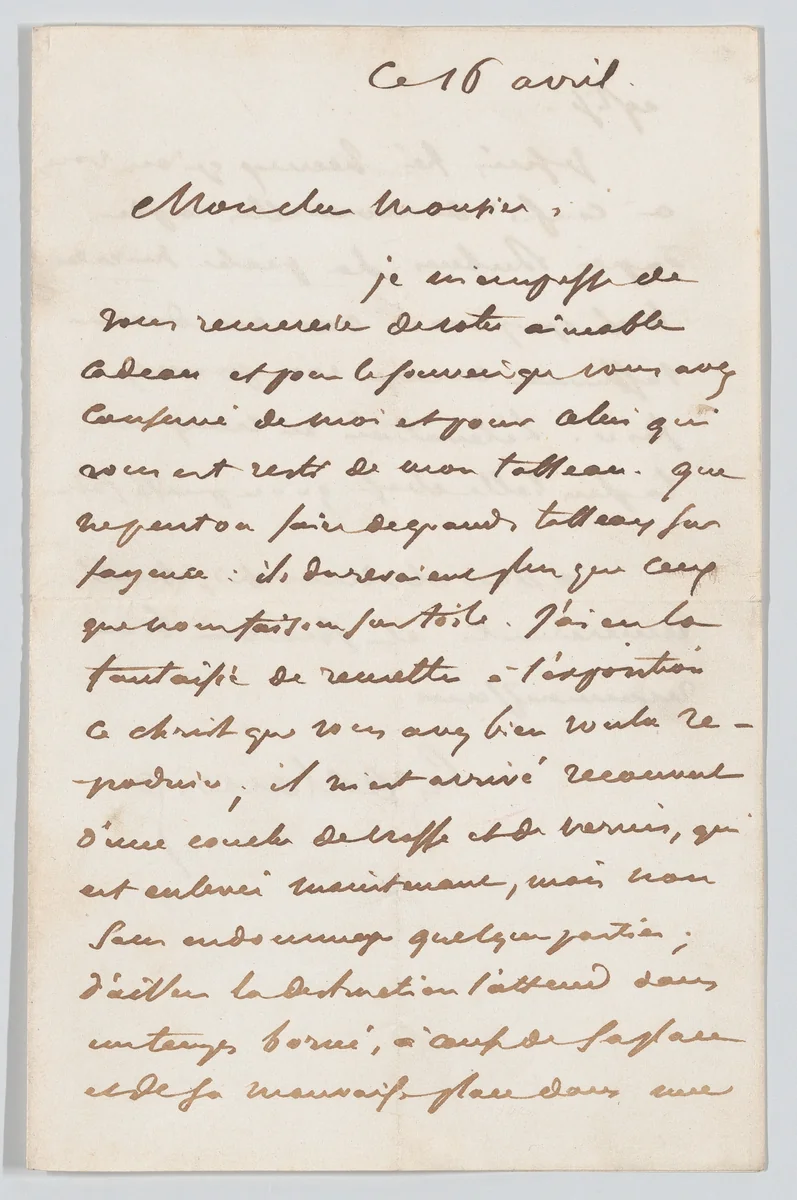 Ce 16 avril.
Mon cher Monsieur,
je m'empresse de
vous remercier de votre aimable
cadeau et pour le souvenir que vous avez
conservé de moi et pour celui qui
vous est resté de mon tableau. Que
ne peut on faire de grands tableaux sur
fayence : ils dureraient plus que ceux
que nous faisons sur toile. J'ai eu la
fantaisie de remettre à l'exposition
ce christ que vous avez bien voulu re-
-produire ; il m'est arrivé recouvert
d'une couche de crasse et de vernis, qui
est enlevée maintenant, mais non
sans endommager quelques parties ;
d'ailleurs la destruction l'attend dans
un temps borné, à cause de sa place
et de sa mauvaise place dans une